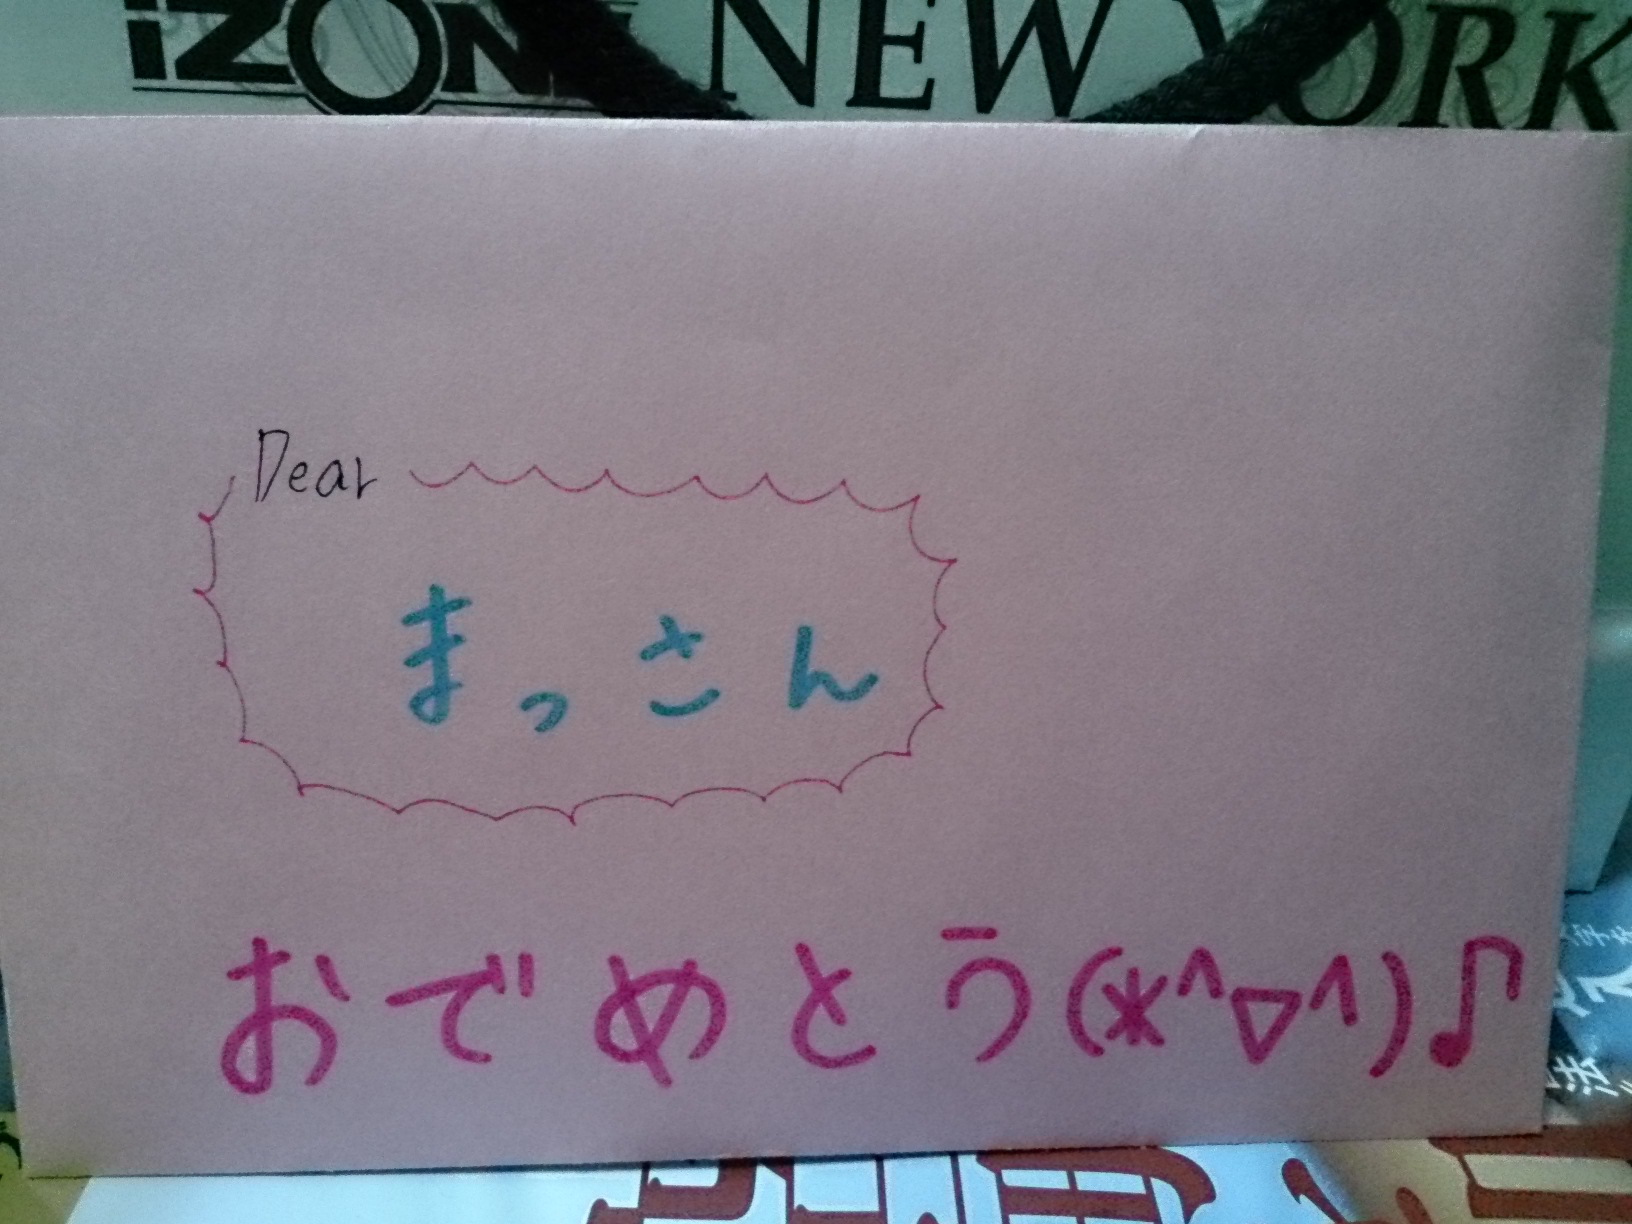 NEW YORK
Dear
まっさん
おでめとう(*^▽^)♪